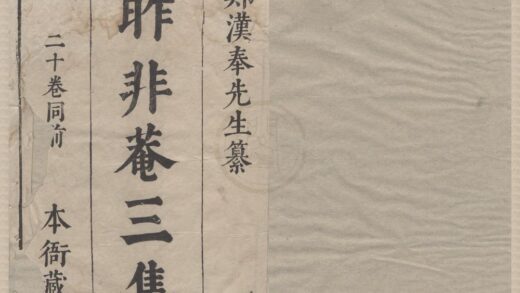 鄭漢奉先生纂
昨非菴三集
二十卷同前
本衙藏